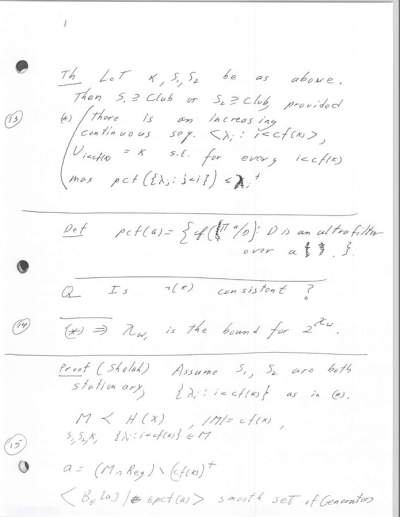 1
Th Let κ, S₁, S₂ be as above.
Then S₁ ⊇ Club or S₂ ⊇ Club, provided
(13)
(*) there is an increasing
continuous seq. <λᵢ : i<cf(κ)>,
U_{i<cf(κ)} = κ s.t. for every i<cf(κ)
max pcf({λⱼ : j<i}) < λᵢ⁺
Def pcf(a) = {cf(Πa/D) : D is an ultrafilter
over a}.
Q Is ¬(*) consistent?
(14)
(*) ⇒ ℵ_{ω₁} is the bound for 2^{ℵ_ω}.
Proof (Shelah) Assume S₁, S₂ are both
stationary, {λᵢ : i<cf(κ)} as in (*).
M ≺ H(χ), |M| = cf(κ),
S₁, S₂, κ, {λᵢ : i<cf(κ)} ∈ M
(15)
a = (M ∩ Reg) \ (cf(κ))⁺
< B_θ[a] | θ ∈ pcf(a) > smooth set of Generators